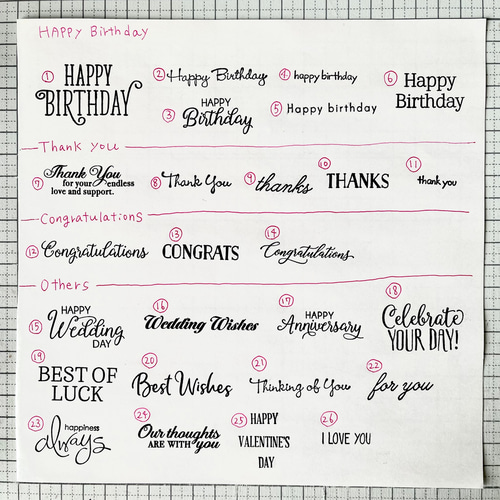 HAPPY Birthday
① HAPPY
BIRTHDAY
② Happy Birthday
③ HAPPY
Birthday
④ happy birthday
⑤ Happy birthday
⑥ Happy
Birthday
Thank you
⑦ Thank You
for your endless
love and support.
⑧ Thank You
⑨ thanks
⑩ THANKS
⑪ thank you
Congratulations
⑫ Congratulations
⑬ CONGRATS
⑭ Congratulations
Others
⑮ HAPPY
Wedding
DAY
⑯ Wedding Wishes
⑰ HAPPY
Anniversary
⑱ Celebrate
YOUR DAY!
⑲ BEST OF
LUCK
⑳ Best Wishes
㉑ Thinking of You
㉒ for you
㉓ happiness
always
㉔ Our thoughts
ARE WITH you
㉕ HAPPY
VALENTINE'S
DAY
㉖ I LOVE YOU